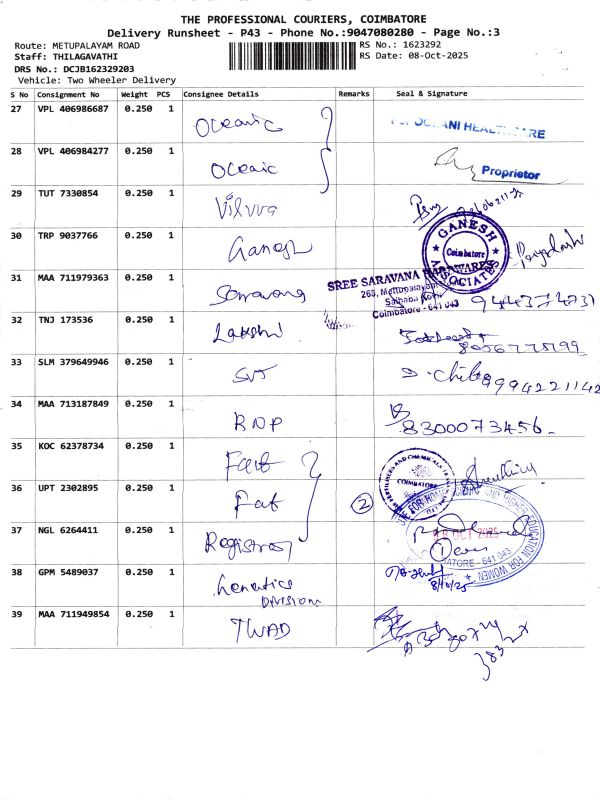 THE PROFESSIONAL COURIERS, COIMBATORE
Delivery Runsheet - P43 - Phone No.:9047080280 - Page No.:3
Route: METUPALAYAM ROAD
RS No.: 1623292
Staff: THILAGAVATHI
RS Date: 08-Oct-2025
DRS No.: DCJB162329203
Vehicle: Two Wheeler Delivery
S No Consignment No Weight PCS Consignee Details Remarks Seal & Signature
27 VPL 406986687 0.250 1 Oceanic HEALTHCARE
28 VPL 406984277 0.250 1 Oceaic Proprietor
29 TUT 7330854 0.250 1
30 TRP 9037766 0.250 1 Ganesh
GANESH ASSOCIATES
Coimbatore
31 MAA 711979363 0.250 1 Saravana
SREE SARAVANA HARDWARES
263, Mettupalayam
Saibaba
Coimbatore - 641 043
32 TNJ 173536 0.250 1 Lakshi
33 SLM 379649946 0.250 1 SVJ 9994221142
34 MAA 713187849 0.250 1 RNP 8300073456
35 KOC 62378734 0.250 1 Fact
FERTILISERS AND CHEMICALS
COIMBATORE
36 UPT 2302895 0.250 1 Fat 2
37 NGL 6264411 0.250 1 Registror
OCT 2025
SCIENCE AND HIGHER EDUCATION FOR WOMEN
COIMBATORE - 641 043
38 GPM 5489037 0.250 1 Genetics
DIVISION
8/10/25
39 MAA 711949854 0.250 1 TWAD